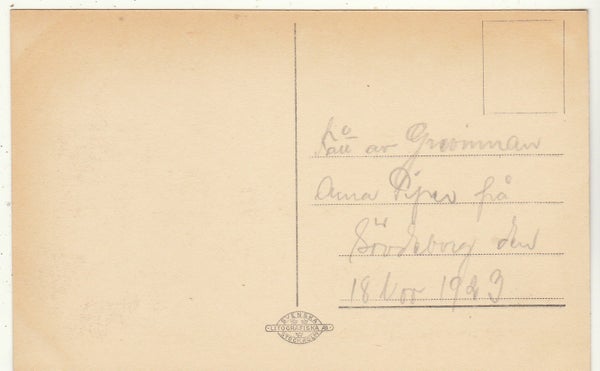 Fått av Grevinnan
Anna Piper på
Sövdeborg den
18 Nov 1943
SVENSKA
LITOGRAFISKA AB
STOCKHOLM